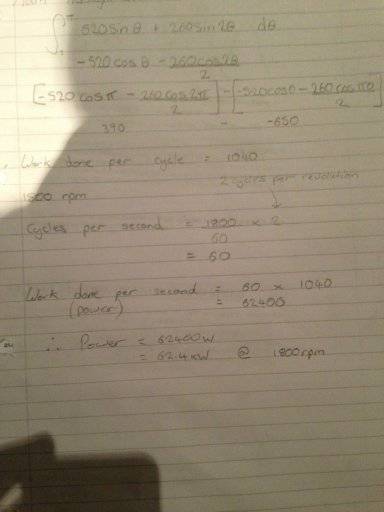 ∫ 520sinθ + 260sin2θ dθ
-520cosθ - 260cos2θ
2
[-520cosπ - 260cos2π] - [-520cos0 - 260cos 0]
2 2
390 - -650
Work done per cycle = 1040
2 cycles per revolution
rpm
Cycles per second = 1800 × 2
60
= 60
Work done per second = 60 × 1040
(power) = 62400
∴ Power = 62400W
= 62.4kW @ 1800rpm